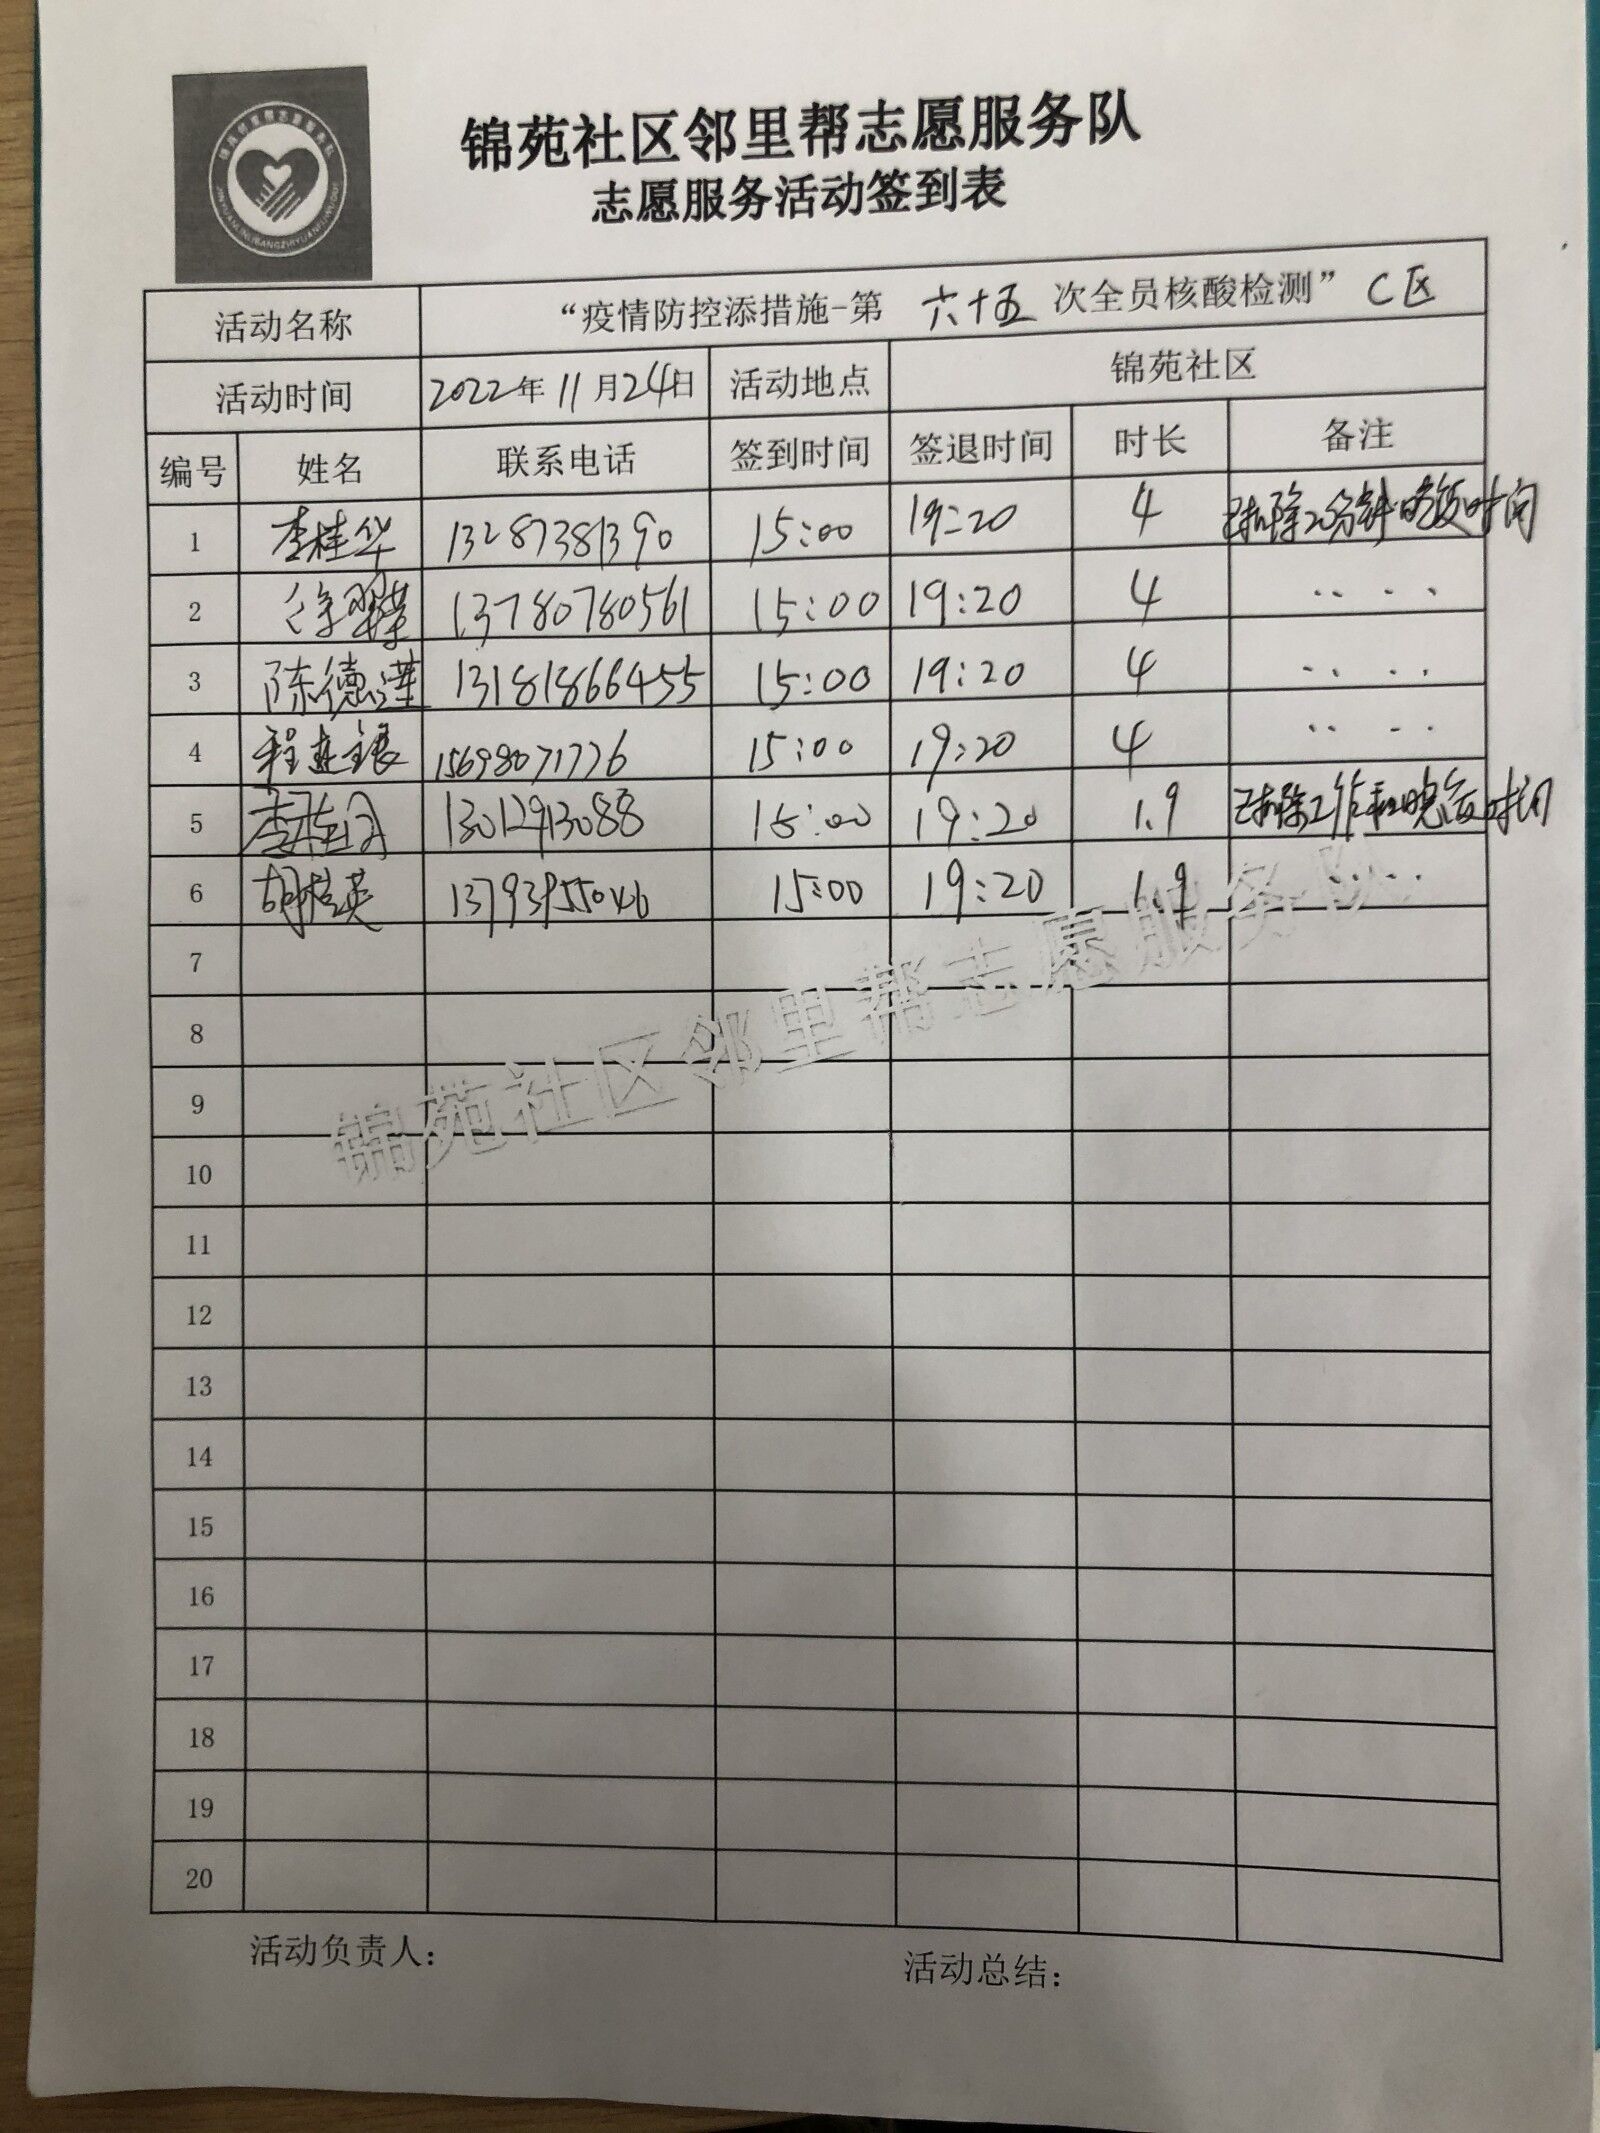 锦苑社区邻里帮志愿服务队
志愿服务活动签到表
活动名称 “疫情防控添措施-第 六十五 次全员核酸检测” C区
活动时间 2022年11月24日 活动地点 锦苑社区
编号 姓名 联系电话 签到时间 签退时间 时长 备注
1 李桂华 13287381390 15:00 19:20 4 已扣除20分钟晚饭时间
2 徐翠 13780780561 15:00 19:20 4 ‥ ‥
3 陈德莲 13181866455 15:00 19:20 4 ‥ ‥
4 程建银 15698071776 15:00 19:20 4 ‥ ‥
5 李桂 13012913088 15:00 19:20 1.9 已扣除工作和晚饭时间
6 胡桂英 13793955046 15:00 19:20 1.9 ‥ ‥
7
8
9
10
11
12
13
14
15
16
17
18
19
20
锦苑社区邻里帮志愿服务队
活动负责人： 活动总结：